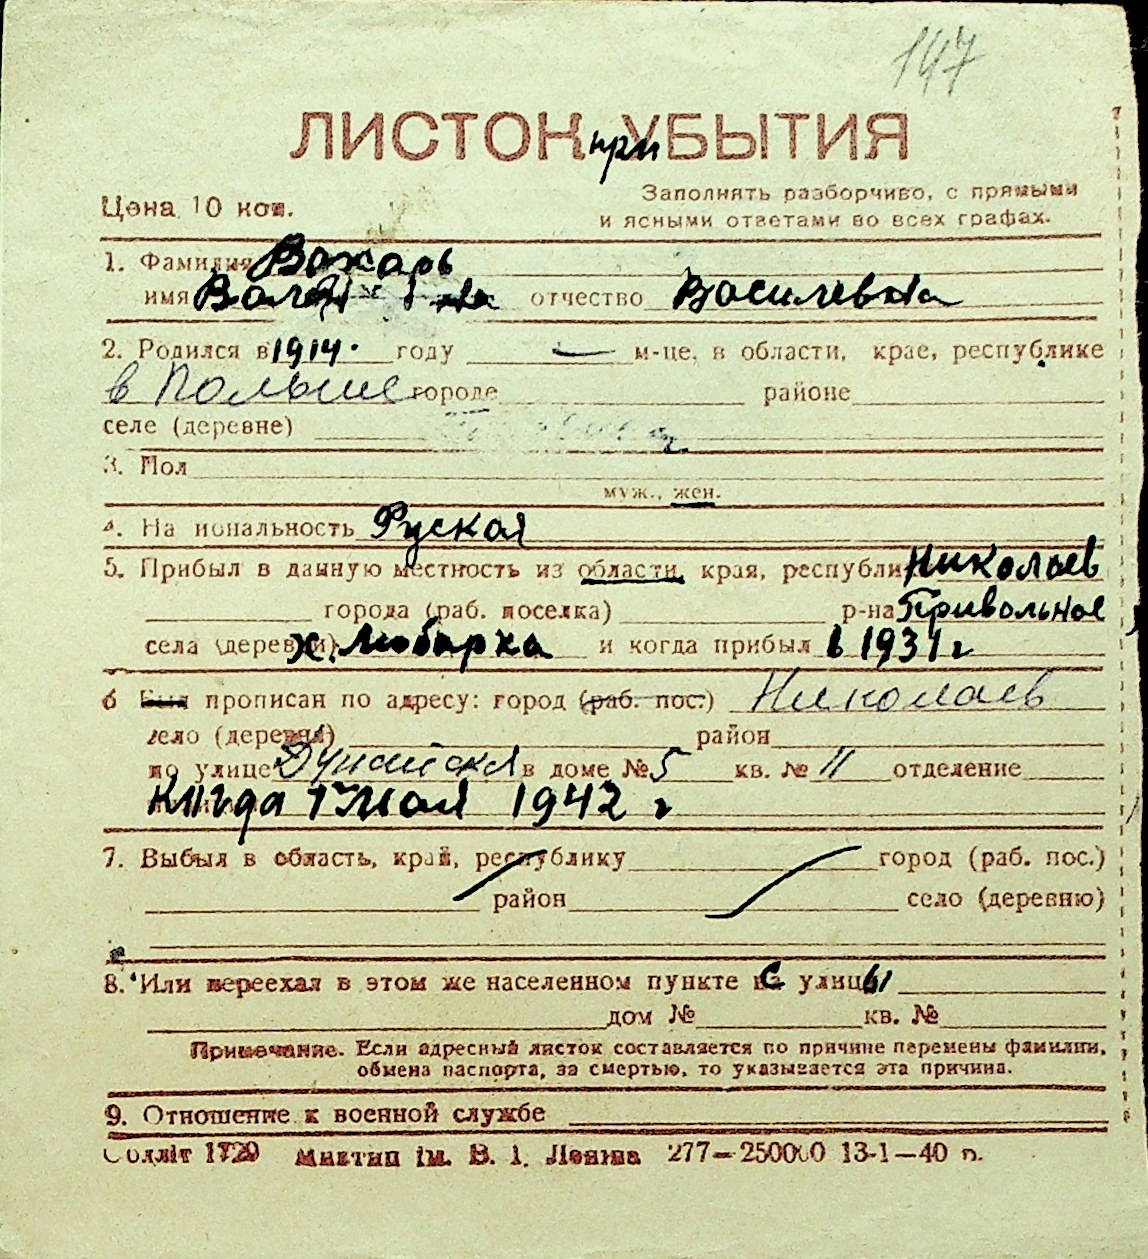 147
ЛИСТОК при УБЫТИЯ
Цена 10 коп.
Заполнять разборчиво, с прямыми
и ясными ответами во всех графах.
1. Фамилия Вожарь
имя отчество Василевна
2. Родился в 1914. году — м-це, в области, крае, республике
в Польше городе районе
селе (деревне)
3. Пол
муж., жен.
4. Национальность Руская
5. Прибыл в данную местность из области, края, республики Николаев
города (раб. поселка) р-на Привольное,
села (деревни) х. Любарка и когда прибыл в 1931 г
6 Был прописан по адресу: город (раб. пос.) Николаев
село (деревня) район
по улице Дунайская в доме № 5 кв. № 11 отделение
Когда 1 Мая 1942 г
7. Выбыл в область, край, республику город (раб. пос.)
район село (деревню)
8. Или переехал в этом же населенном пункте с улицы
дом № кв. №
Примечание. Если адресный листок составляется по причине перемены фамилии,
обмена паспорта, за смертью, то указывается эта причина.
9. Отношение к военной службе
Соцліт 1729 Миктип ім. В. І. Леніна 277—250000 13-1—40 п.